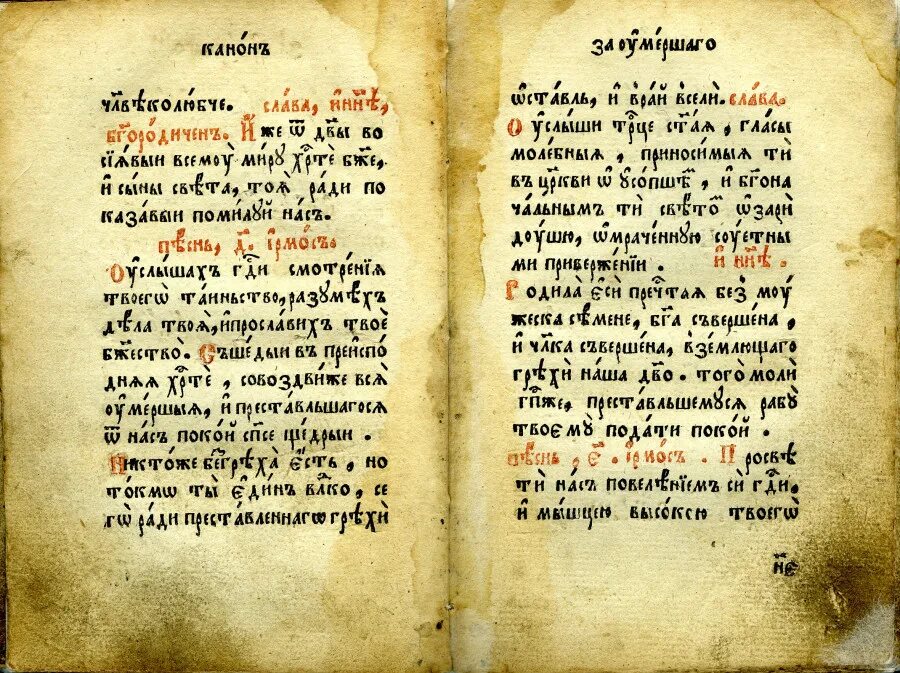 канѡ́нъ
чл҃вѣколю́бче. сла́ва, и҆ нн҃ѣ,
бг҃оро́диченъ. И҆́же ѿ дв҃ы во
сїѧ́выи всемоу̀ ми́рꙋ хрⷭ҇тѐ бж҃е,
и҆ сы́ны свѣ́та, тоѧ̀ ра́ди по
каза́выи поми́лꙋй на́съ.
пѣ́снь, д҃. і҆рмо́съ.
Оу҆слы́шахъ гдⷭ҇и смотре́нїѧ
твоегѡ̀ та́иньство, разꙋмѣ́хъ
дѣ́ла твоѧ̀, и҆ просла́вихъ твоѐ
бжⷭ҇ество̀. Съше́дыи въ преи҆спо́
днѧѧ хрⷭ҇тѐ, совоздви́же всѧ̀
оу҆ме́ршыѧ, и҆ преста́вльшагосѧ
ѿ на́съ поко́й сп҃се ще́дрыи.
Никто́же безгрѣ́ха є҆́сть, но
то́кмѡ ты̀ є҆ди́нъ влⷣко, се
гѡ̀ ра́ди преста́вленнагѡ грѣхѝ
за оу҆ме́ршаго
ѡ҆ста́вль, и҆ в ра́й вселѝ. сла́ва.
Оу҆слы́ши трⷪ҇це ст҃а́ѧ, гла́сы
моле́бныѧ, приноси́мыѧ тѝ
въ цр҃кви ѡ҆ ᲂу҆со́пшⷯѣ, и҆ бг҃она
ча́льнымъ тѝ свѣ́тоⷨ ѡ҆зарѝ
до́ушю, ѡ҆мраче́ннꙋю соу́етны
ми приверже́нїи. и҆ нн҃ѣ.
Родила̀ є҆сѝ пречⷭ҇таѧ без̾ моу́
жеска сѣ́мене, бг҃а съверше́на,
и҆ чл҃ка съверше́на, взе́млющаго
грѣхѝ на́ша дв҃о. того̀ молѝ
гпⷭ҇же, преста́вльшемꙋсѧ рабꙋ̀
твоємꙋ̀ пода́ти поко́й.
пѣ́снь, є҃. і҆рмо́съ. Просвѣ
тѝ на́съ повелѣ́нїемъ си гдⷭ҇и,
и҆ мы́шцею высо́кою твоегѡ̀